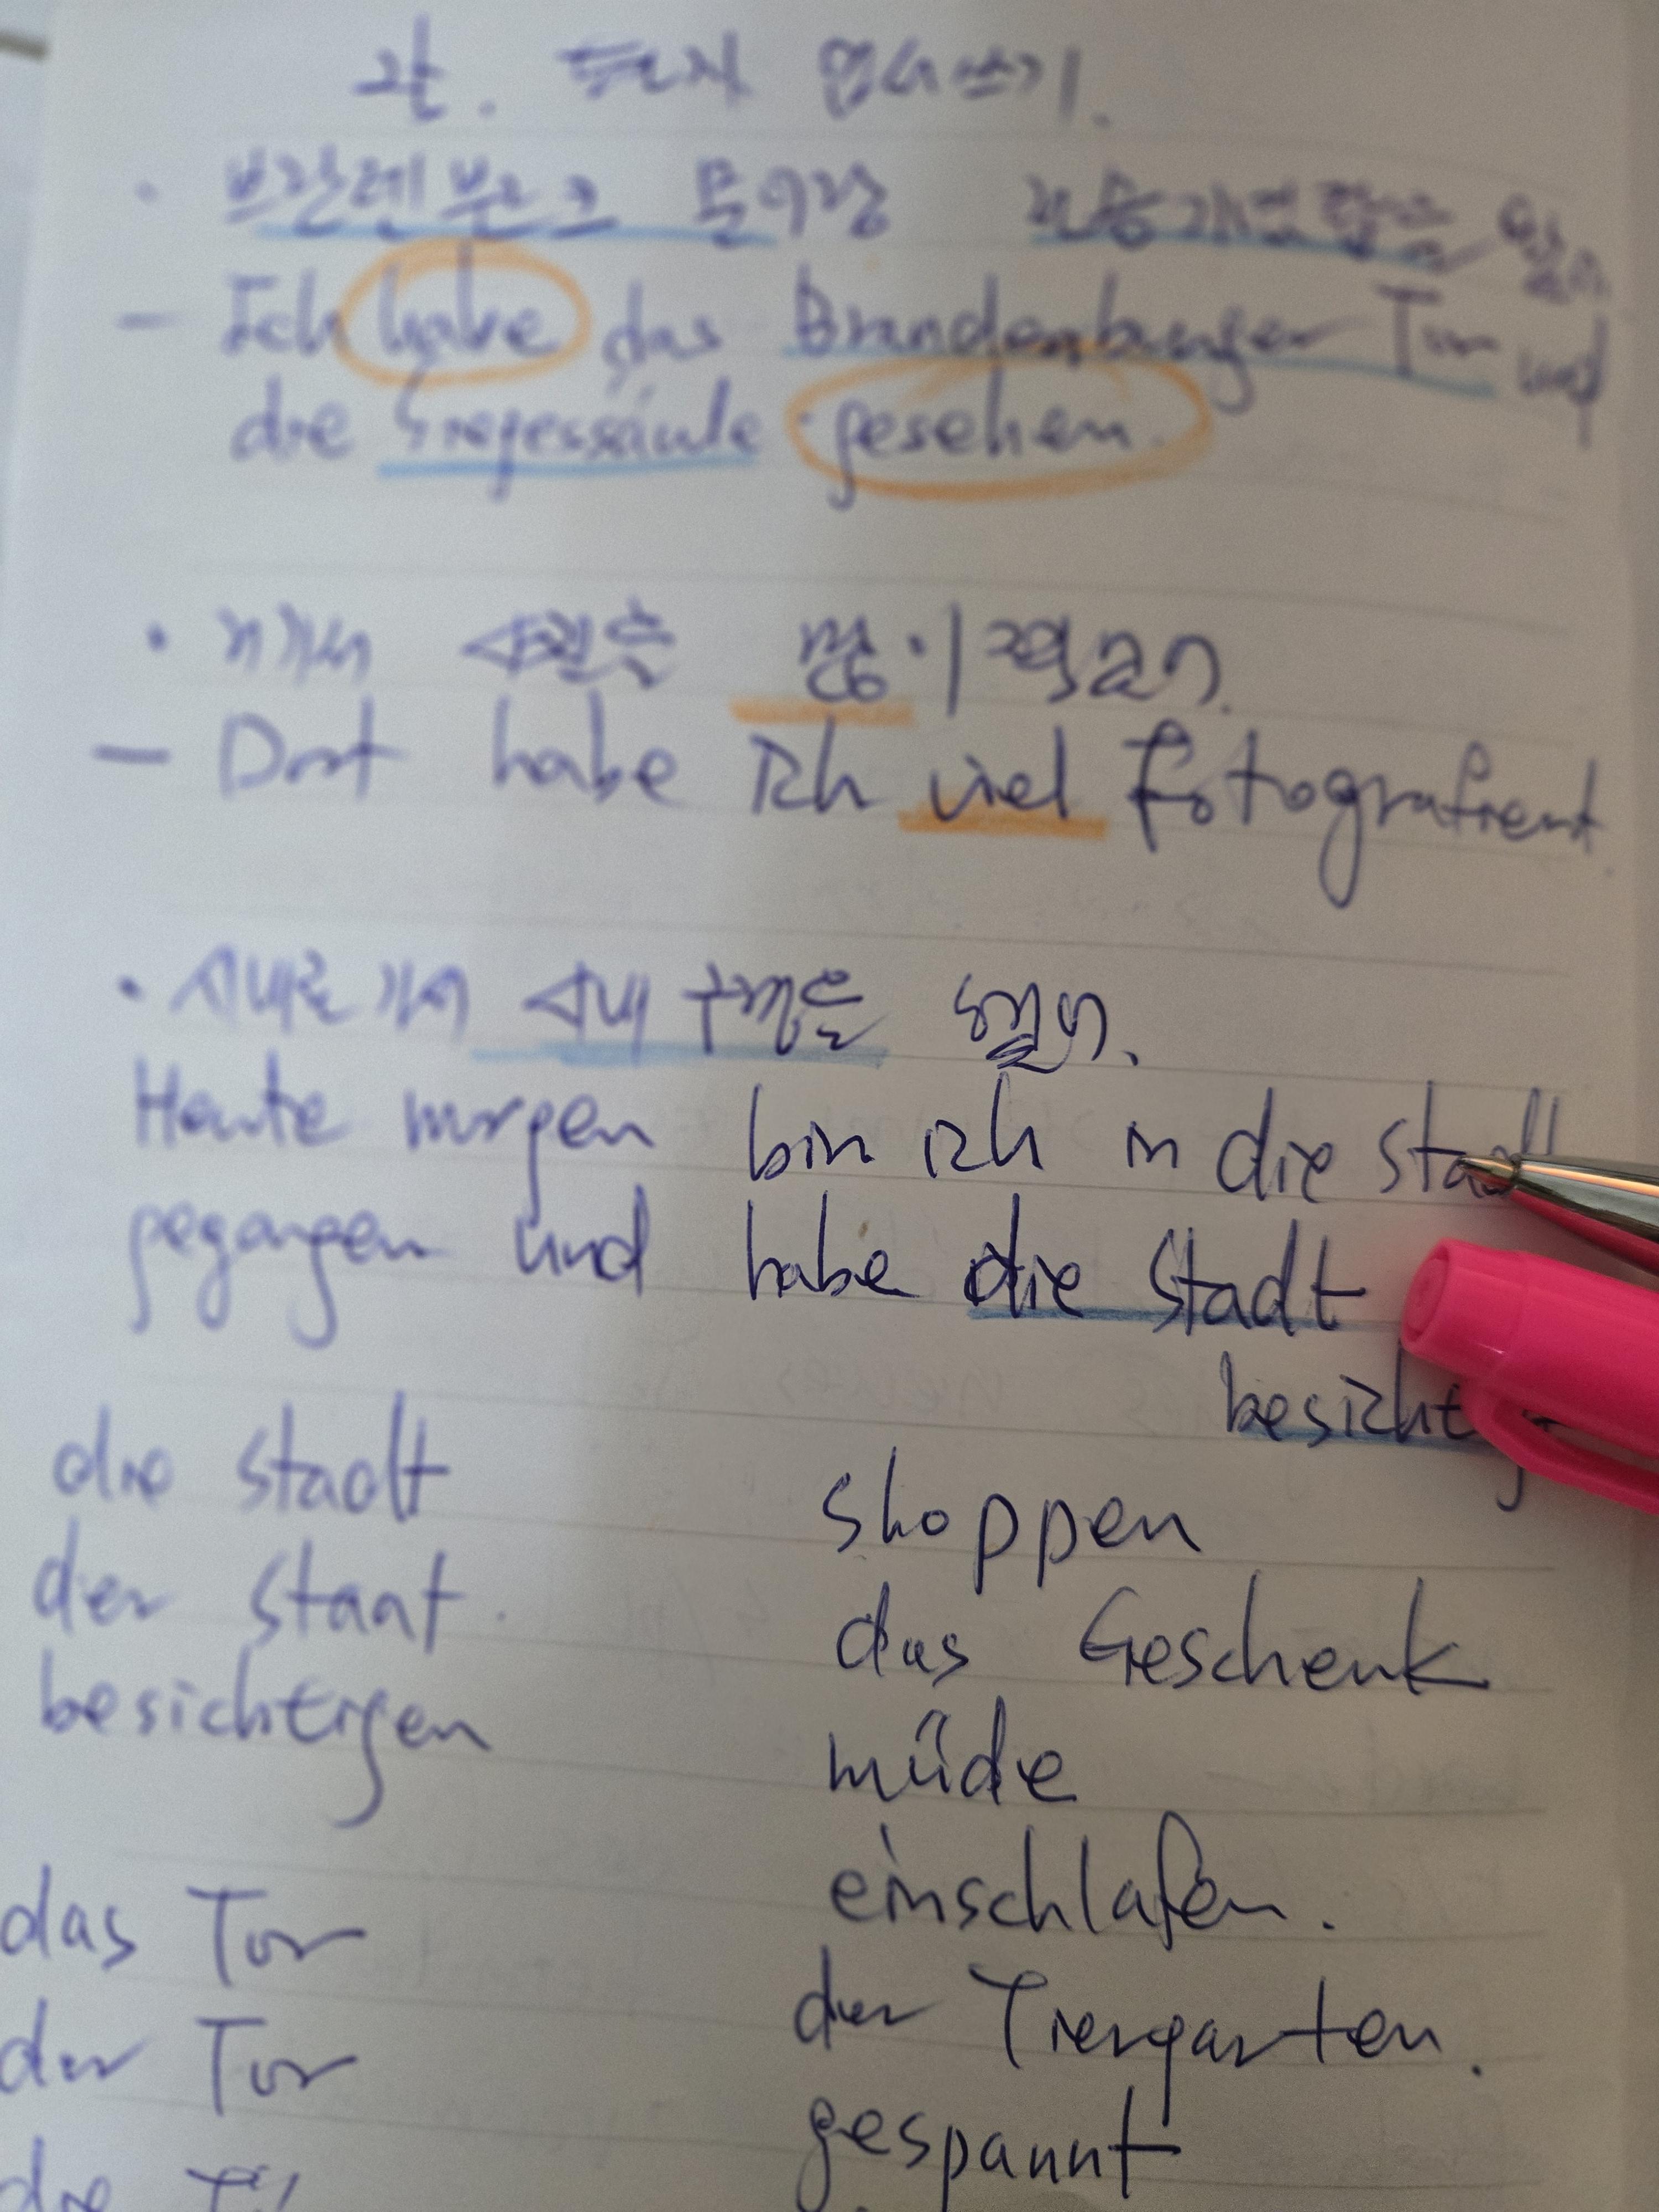 과. 편지 엽서쓰기.
· 브란덴부르크 문이랑 전승기념탑을 봤어
— Ich habe das Brandenburger Tor und
die Siegessäule gesehen.
· 거기서 사진을 많이 찍었어.
— Dort habe ich viel fotografiert.
· 시내로 가서 시내 구경을 했어.
Heute morgen bin ich in die Stadt
gegangen und habe die Stadt
die Stadt
shoppen
der Staat.
das Geschenk
besichtigen
müde
einschlafen.
das Tor
der Tiergarten.
der Tor
gespannt